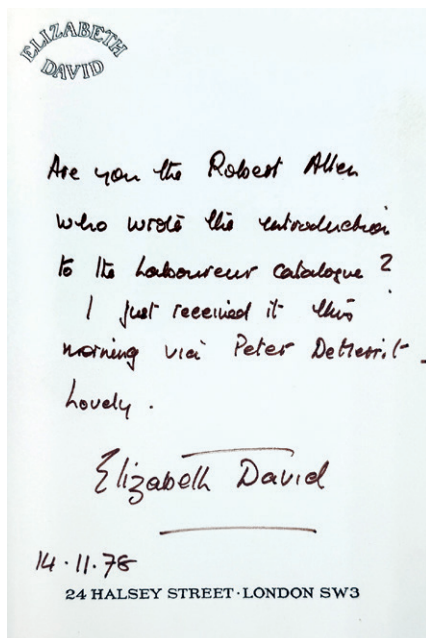 ELIZABETH
DAVID
Are you the Robert Allen
who wrote the introduction
to the Laboureur catalogue?
I just received it this
morning via Peter DeMerrit -
Lovely.
Elizabeth David
14.11.78
24 HALSEY STREET·LONDON SW3